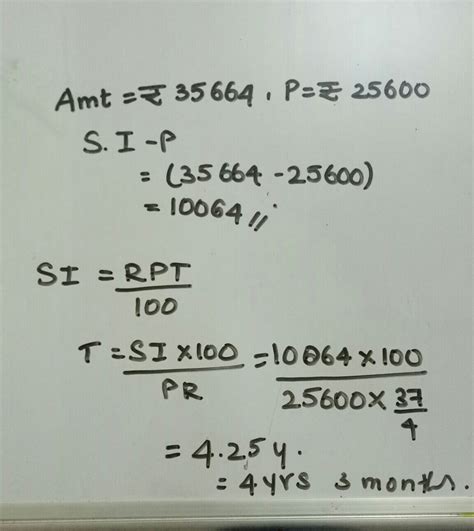 Amt = ₹ 35664, P = ₹ 25600
S.I-P
= (35664 - 25600)
= 10064 //
SI = RPT/100
T = SI × 100/PR = 10064 × 100/25600 × 37/4
= 4.25 y.
= 4 yrs 3 months.